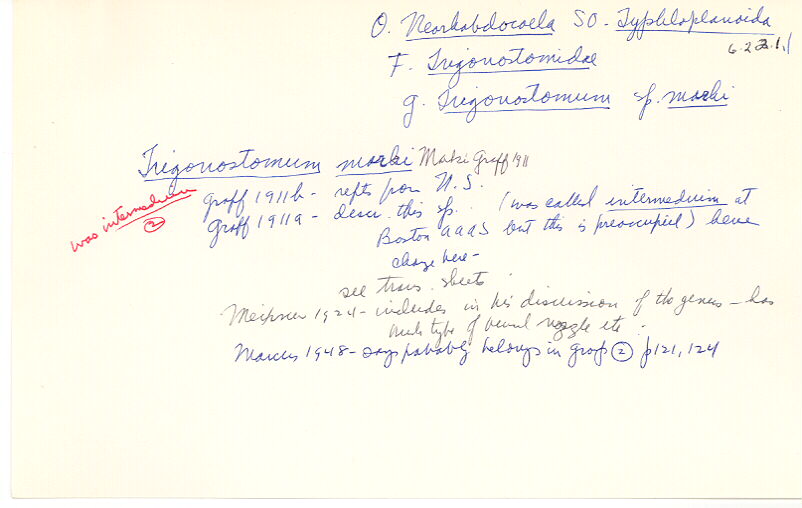 O. Neorhabdocoela SO - Typhloplanoida
6.2.2.1.1
F. Trigonostomidae
g. Trigonostomum sp. marki
Trigonostomum marki Graff 1911
was intermedium
②
Graff 1911b - repts from U.S.
Graff 1911a - descr. this sp. (was called intermedium at
Boston AAAS but this is preoccupied) hence
change here -
see trans. sheets.
Meixner 1924 - includes in his discussion of the genus - has
type of nozzle etc.
Marcus 1948 - says probably belongs in group ② p121, 124